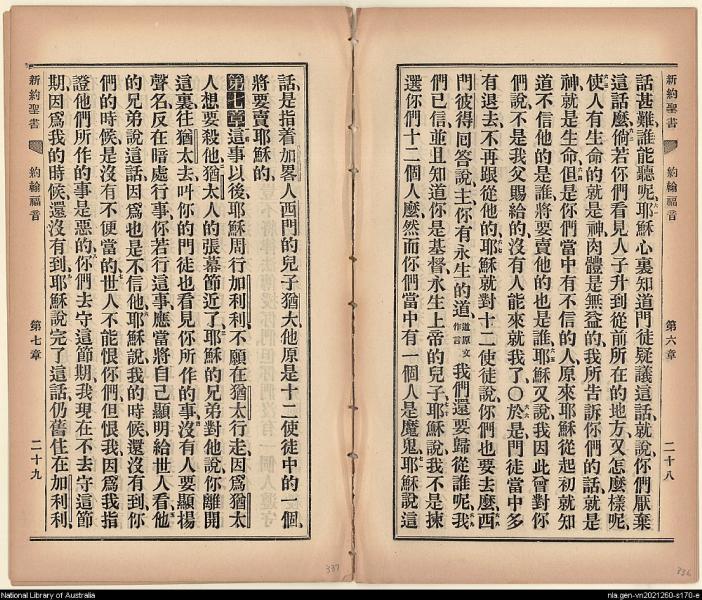 新約聖書
約翰福音
第六章
二十八
話甚難誰能聽呢耶穌心裏知道門徒疑議這話就說你們厭棄
這話麼倘若你們看見人子升到從前所在的地方又怎麼樣呢
使人有生命的就是神肉體是無益的我所告訴你們的話就是
神就是生命但是你們當中有不信的人原來耶穌從起初就知
道不信他的是誰將要賣他的也是誰耶穌又說我因此曾對你
們說不是我父賜給的沒有人能來就我了〇於是門徒當中多
有退去不再跟從他的耶穌就對十二使徒說你們也要去麼西
門彼得囘答說主你有永生的道道原文作言我們還要歸從誰呢我
們已信並且知道你是基督永生上帝的兒子耶穌說我不是揀
選你們十二個人麼然而你們當中有一個人是魔鬼耶穌說這
話是指着加畧人西門的兒子猶大他原是十二使徒中的一個
將要賣耶穌的
第七章這事以後耶穌周行加利利不願在猶太行走因爲猶太
人想要殺他猶太人的張幕節近了耶穌的兄弟對他說你離開
這裏往猶太去叫你的門徒也看見你所作的事沒有人要顯揚
聲名反在暗處行事你若行這事應當將自己顯明給世人看他
的兄弟說這話因爲也是不信他耶穌說我的時候還沒有到你
們的時候是沒有不便當的世人不能恨你們但恨我因爲我指
證他們所作的事是惡的你們去守這節期我現在不去守這節
期因爲我的時候還沒有到耶穌說完了這話仍舊住在加利利
新約聖書
約翰福音
第七章
二十九
337
336
National Library of Australia
nla.gen-vn2021260-s170-e